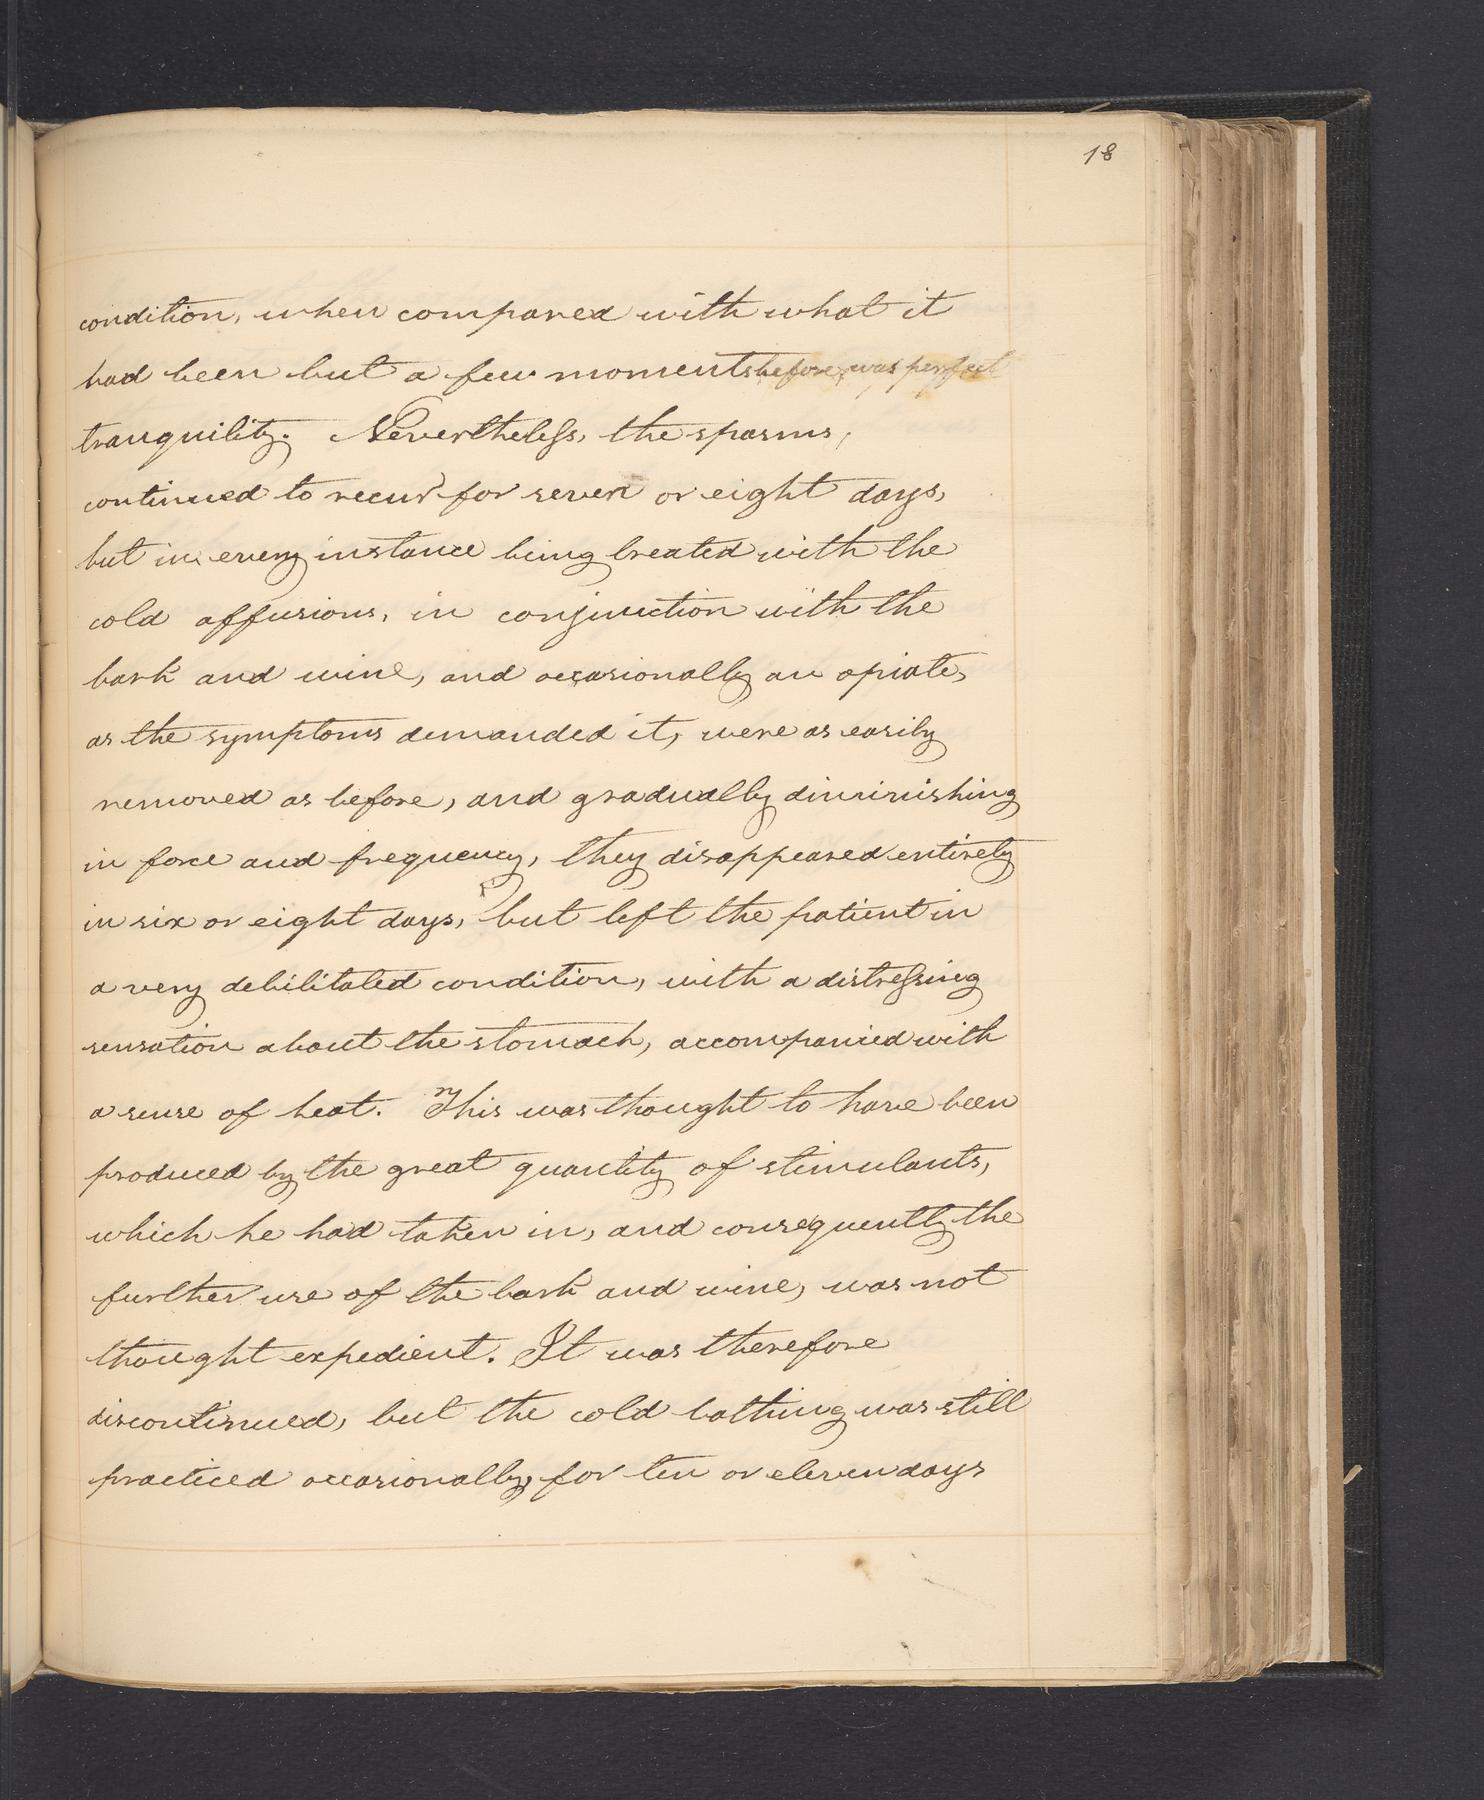 18
condition, when compared with what it
had been but a few moments before, was perfect
tranquility. Nevertheless, the spasms,
continued to recur for seven or eight days,
but in every instance being treated with the
cold affusions, in conjunction with the
bark and wine, and occasionally an opiate,
as the symptoms demanded it, were as easily
removed as before, and gradually diminishing
in force and frequency, they disappeared entirely
in six or eight days, but left the patient in
a very debilitated condition, with a distressing
sensation about the stomach, accompanied with
a sense of heat. This was thought to have been
produced by the great quantity of stimulants,
which he had taken in, and consequently the
further use of the bark and wine, was not
thought expedient. It was therefore
discontinued, but the cold bathing was still
practiced occasionally, for ten or eleven days